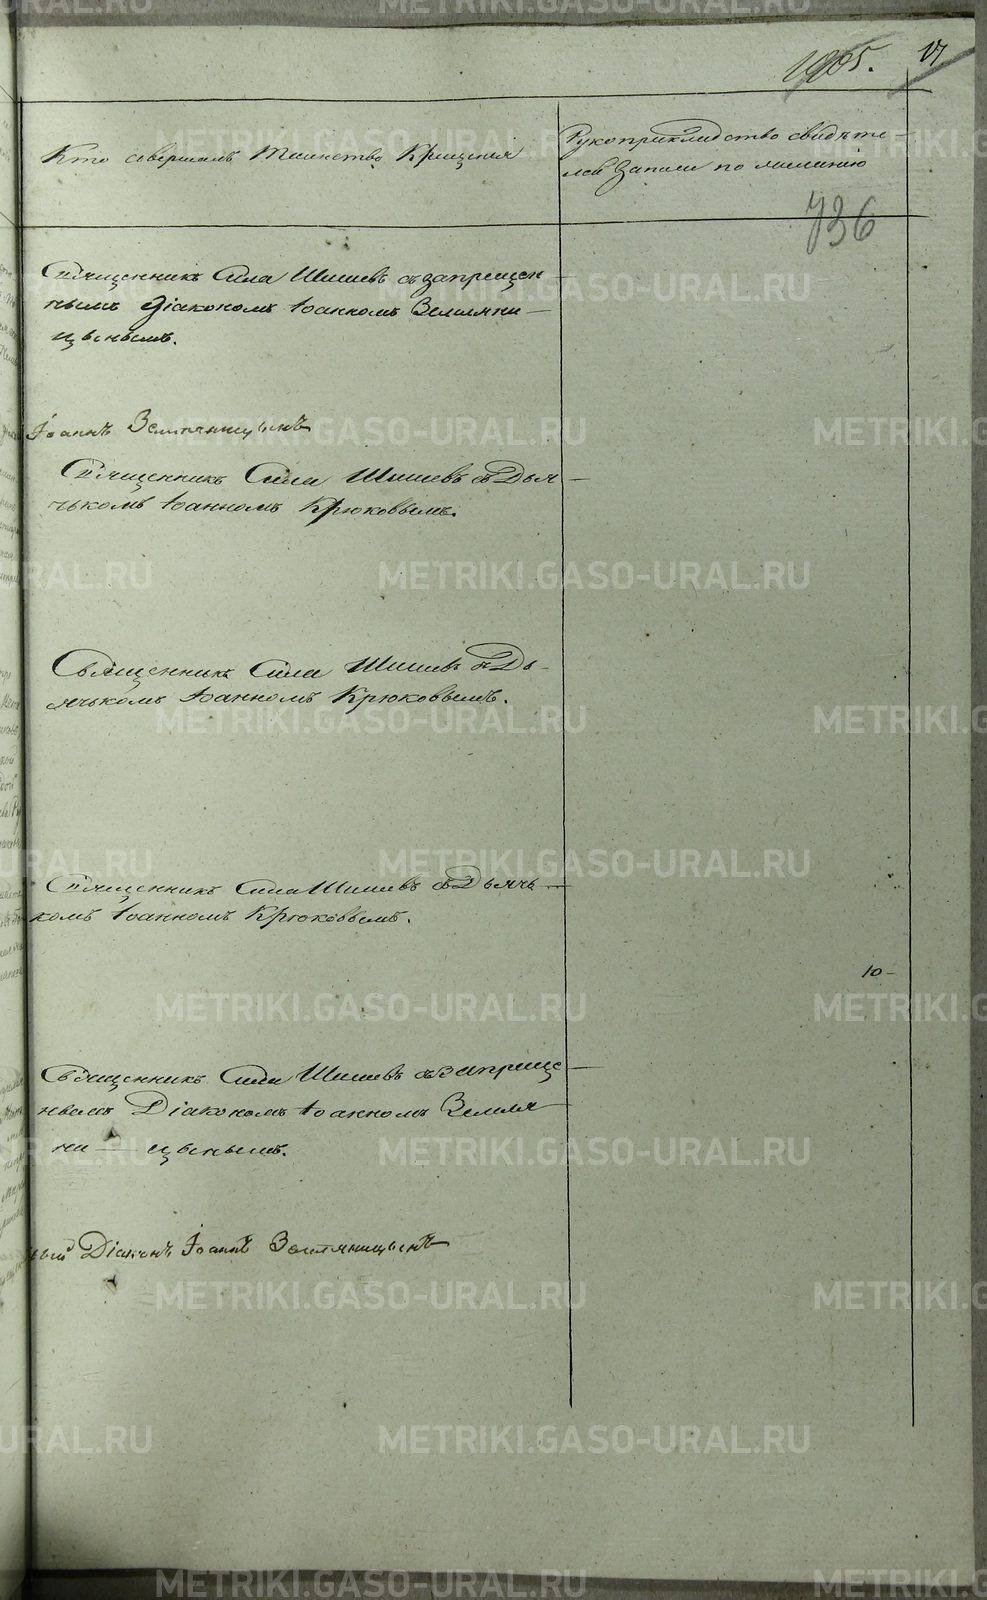 1905. 17
Кто совершалъ Таинство Крещенія
Рукоприкладство свидѣте-
лей записи по желанію
736
Священникъ Сила Шишевъ съ запрещен-
нымъ Діакономъ Іоанномъ Земляни-
цынымъ.
Іоаннъ Земляницынъ
Священникъ Сила Шишевъ съ Дья-
чькомъ Іоанномъ Крюковымъ.
Священникъ Сила Шишевъ съ Дь-
ячькомъ Іоанномъ Крюковымъ.
Священникъ Сила Шишевъ съ Дьячь-
комъ Іоанномъ Крюковымъ.
10-
Священникъ Сила Шишевъ съ запреще-
нымъ Діакономъ Іоанномъ Земля-
ни — цынымъ.
ный Діаконъ Іоаннъ Земляницынъ
METRIKI.GASO-URAL.RU